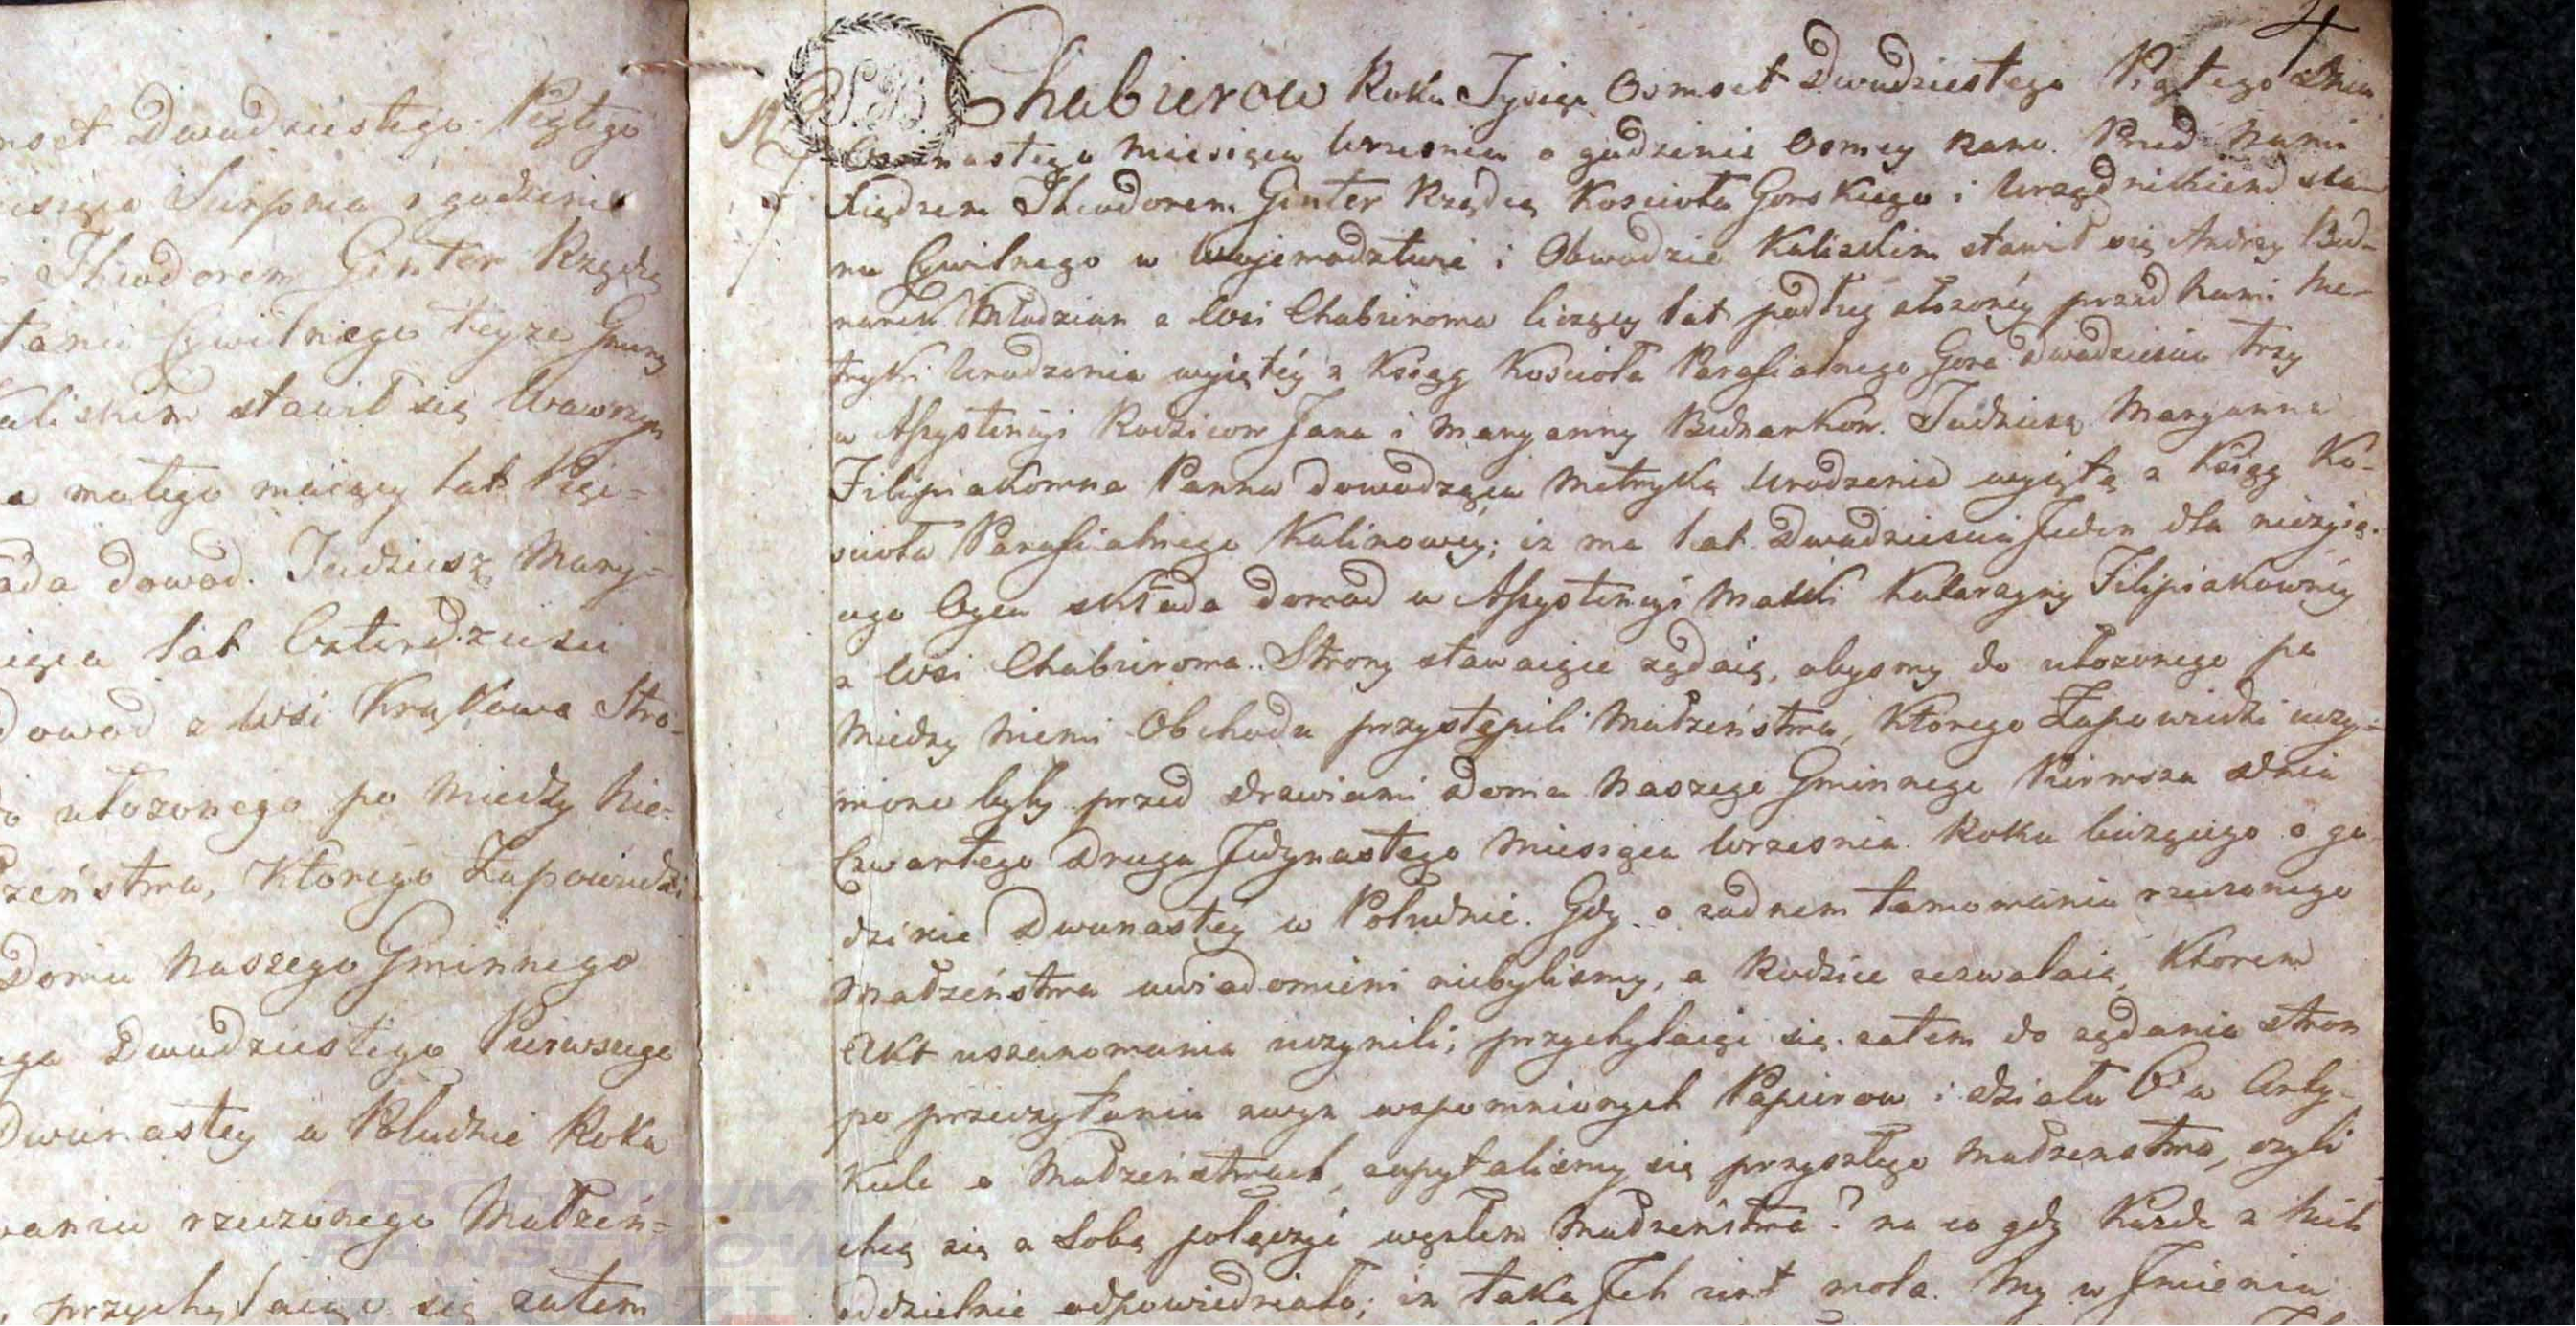 mset Dwudziestego Piątego
Sierpnia o godzinie
Theodorem Ginter Rządcą
Cywilnego teyze Gminy
Kaliskim stawił się Wawrzyn
a małego maiący lat Pięc=
ada dowod. Tudziesz Mary=
lat Czterdziesci
dowod z Wsi Krąkowa Stro=
o ułozonego po Miedzy Nie=
żeństwa, Ktorego Zapowiedzi
Domu Naszego Gminnego
Dwudziestego Pierwszego
Dwunastey w Południe Roku
rzeczonego Małżeń=
przychylaiąc się zatem
4
N
7
SB
Chabierow Roku Tysiąc Osmset Dwudziestego Piątego Dnia
Osmnastego Miesiąca Wrzesnia o godzinie Osmey Rano. Przed Nami
Xiędzem Theodorem Ginter Rządcą Koscioła Gorskiego i Urzędnikiem sta=
nu Cywilnego w Wojewodztwie i Obwodzie Kaliskim stawił się Andrzy Bed=
narek Młodzian z Wsi Chabierowa liczący lat podług złozonéy przed Nami Me=
tryki Urodzenia wyiętéy z Ksiąg Kościoła Parafialnego Gora dwadziescia trzy
w Assystencyi Rodzicow Jana i Maryanny Bednarkow. Tudziesz Maryanna
Filipiakowna Panna dowodząca Metryką Urodzenia wyiętą z Ksiąg Ko=
scioła Parafialnego Kalinowéy; iz ma lat Dwadziescia Jeden dla nieżyią=
cego Oyca składa dowod w Assystencyi Matki Katarzyny Filipiakownéy
z Wsi Chabierowa. Strony stawaiące ządaią, abysmy do ułozonego po
Miedzy Niemi Obchodu przystąpili Małżeństwa, Ktorego Zapowiedzi uczy=
nione były przed drzwiami Domu Naszego Gminnego Pierwsza dnia
Czwartego Druga Jedynastego Miesiąca Wrzesnia Roku biezącego o go
dzinie Dwunastéy w Południe. Gdy o zadnem tamowaniu rzeczonego
Małżeństwa uwiadomieni niebylismy, a Rodzice zezwalaią, Ktorem
Akt uszanowania uczynili; przychylaiąc się zatem do ządania stron
po przeczytaniu zwyz wspomnionych Papierow i działu 6o w Arty=
kule o Małżeństwach, zapytalismy się przyszłego Małzenstwa, czyli
chcą się z Sobą połączyć węzłem Małżeństwa? na co gdy Każde z Nich
oddzielnie odpowiedziało; iz taka Jch iest wola. My w Jmieniu
ARCHIWUM
PAŃSTWOWE